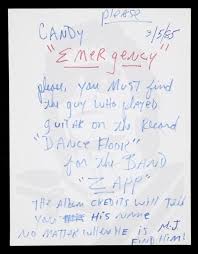 please
CANDY 3/5/85
"EMERgency"
please, you MUST find
the guy who played
guitar on the Record
"DANCE FLOOR"
for the BAND
"ZAPP"
The Album CREDITS will Tell
You His Name
NO MATTER WHERE HE IS MJ
FIND HIM!